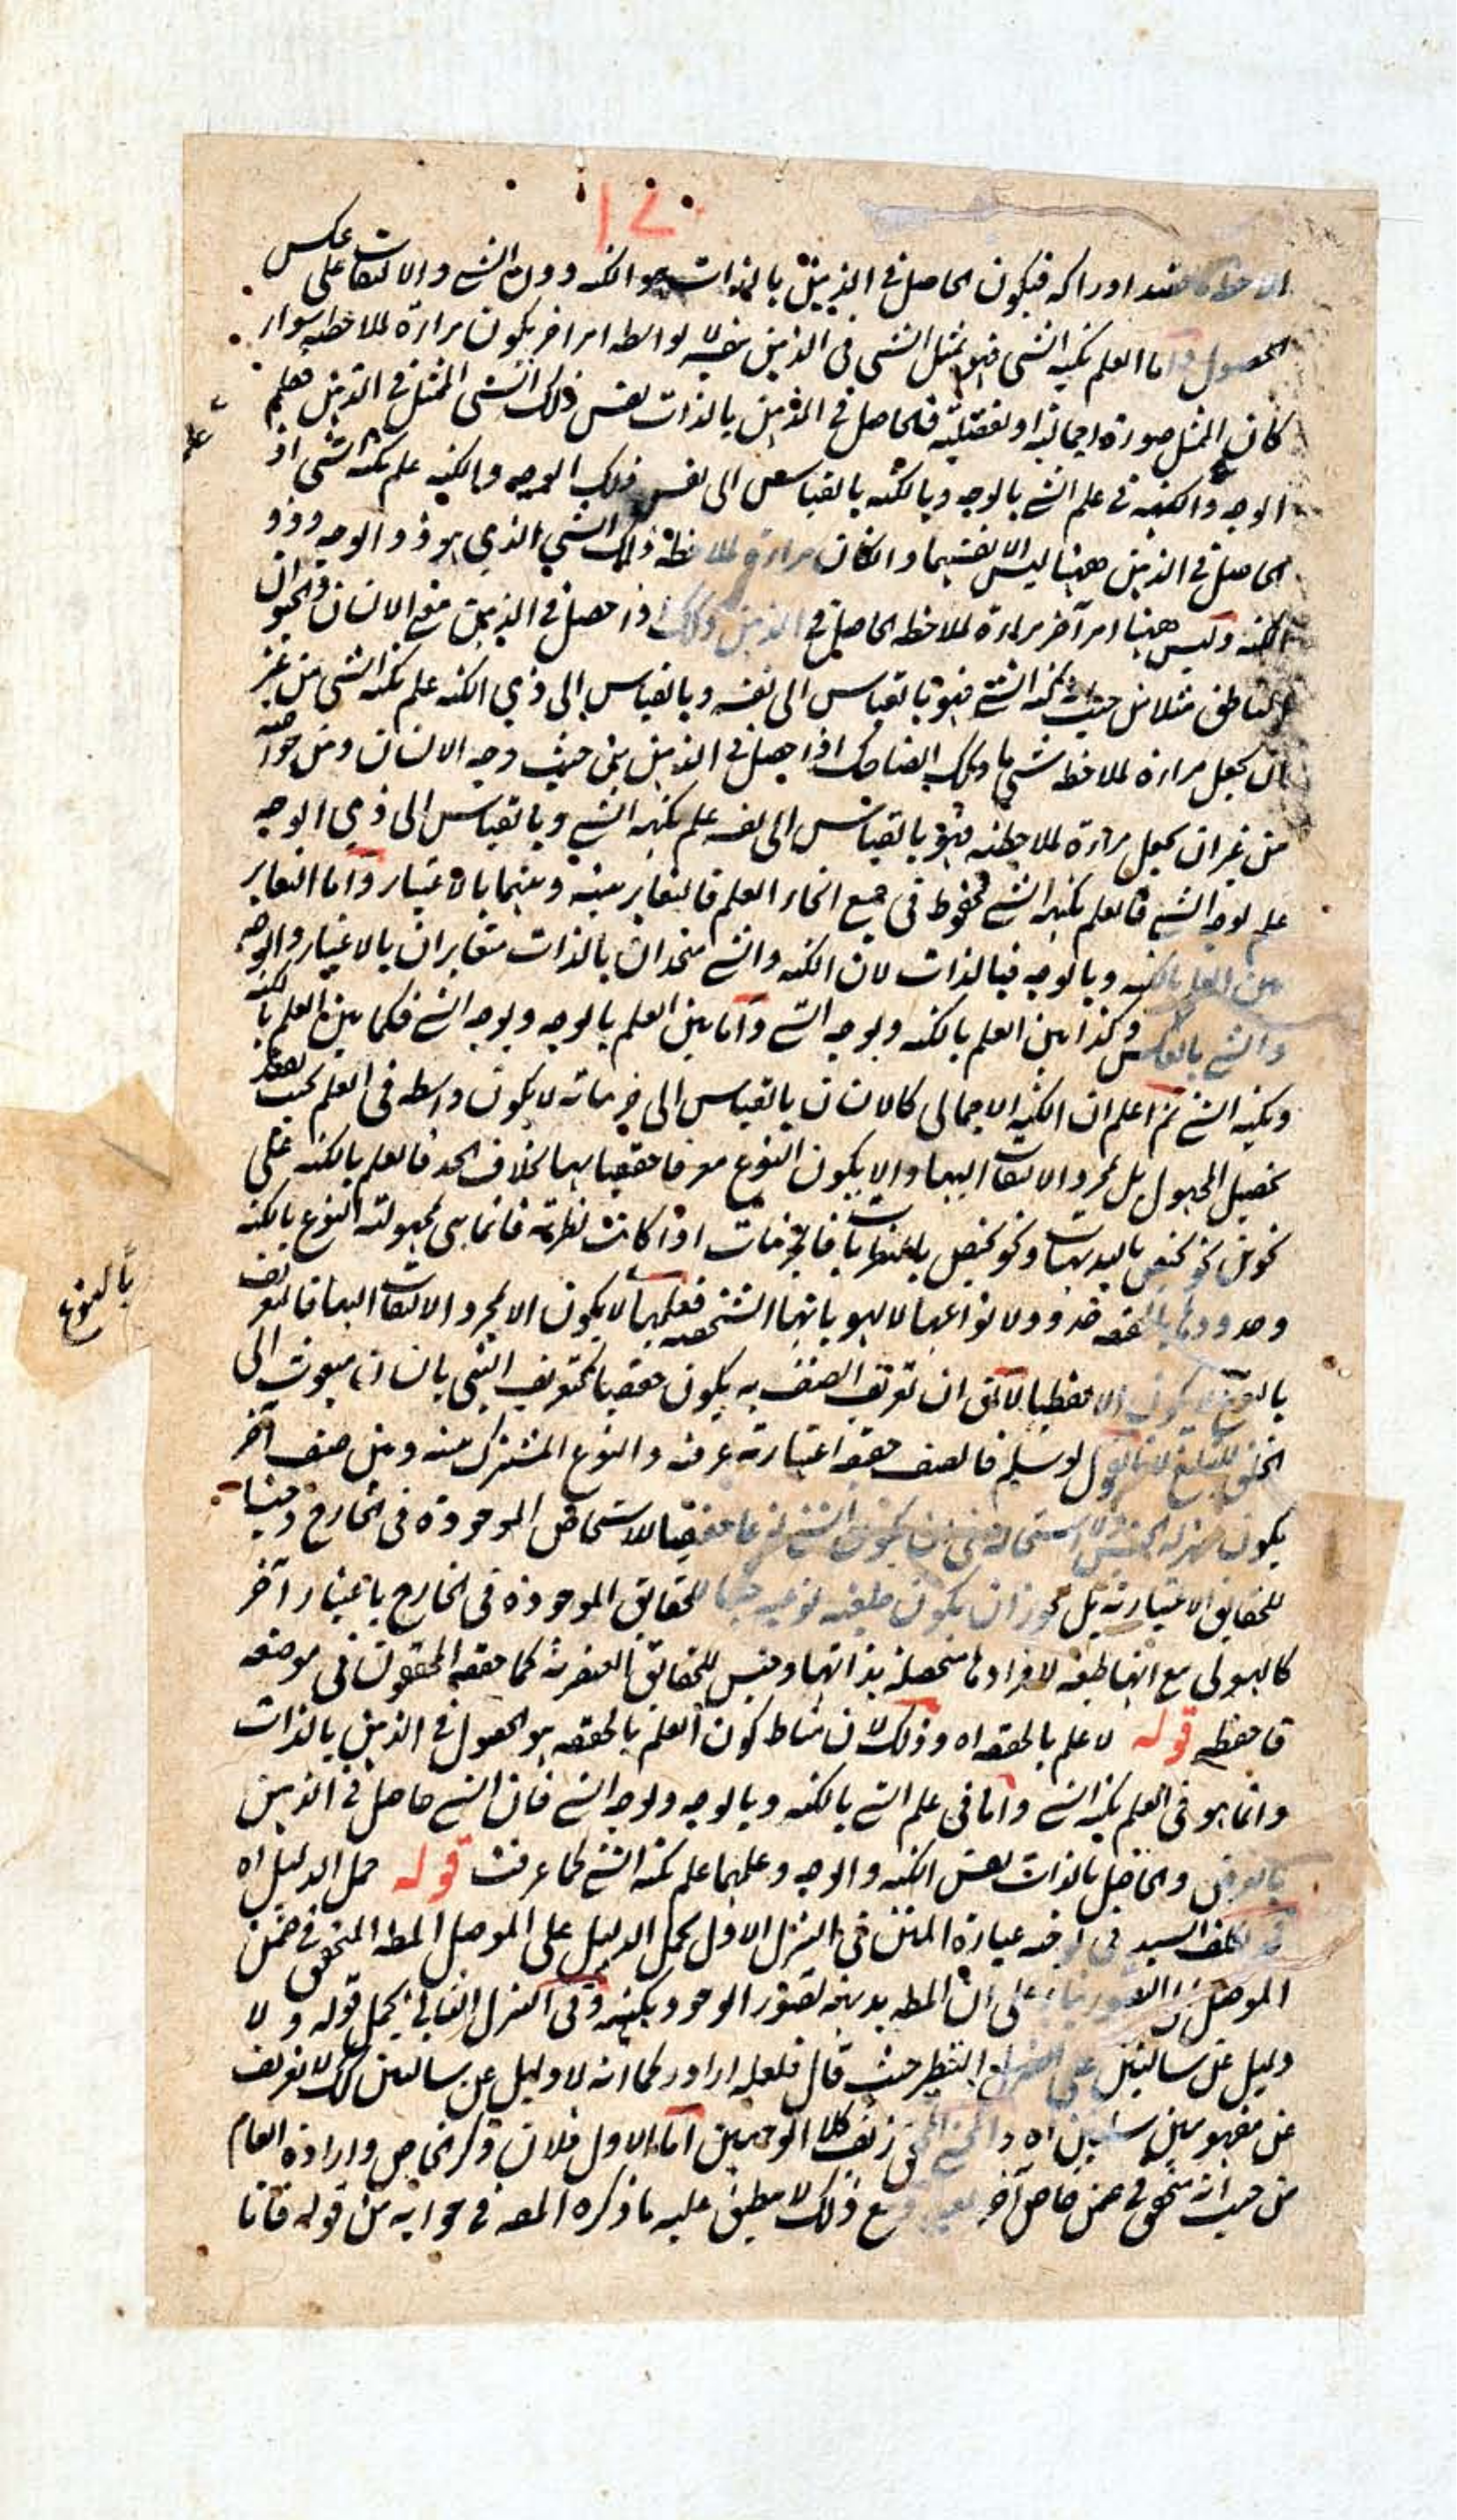 ۱۷۰
ادراكه فيكون الحاصل في الذهن بالذات هو الكنه دون الشي والالتفات على عكس
الحصول واما العلم بكنه الشي فهو تمثل الشي في الذهن بنفسه لا بواسطة امر اخر يكون مراة لملاحظته سواء
كان الممثل صورة اجمالية او تفصيلية فالحاصل في الذهن بالذات نفس ذلك الشي المتمثل في الذهن فعلم
علم
الوجه والكنه في علم الشي بالوجه وبالكنه بالقياس الى نفس ذلك الوجه والكنه علم بكنه الشي اذ
الحاصل في الذهن ههنا ليس الا نفسهما وان كان مراة لملاحظة ذلك الشي الذي هو ذو الوجه وذو
الكنه وليس ههنا امر آخر مراة لملاحظة الحاصل في الذهن وكذلك اذا حصل في الذهن مع الانسان والحيوان
الناطق مثلا من حيث كنه الشي فهو بالقياس الى نفسه وبالقياس الى ذي الكنه علم بكنه الشي من غير
ان يجعل مراة لملاحظة شي ما وكذلك الضاحك اذا حصل في الذهن من حيث وجه الانسان ومن خواصه
من غير ان يجعل مراة لملاحظته فهو بالقياس الى نفسه علم بكنه الشي وبالقياس الى ذي الوجه
علم بوجه الشي فالعلم بكنه الشي محفوظ في جميع انحاء العلم فالتغاير بينه وبينهما بالاعتبار واما التغاير
بين العلم بالكنه وبالوجه فبالذات لان الكنه والشي متحدان بالذات متغايران بالاعتبار والوجه
والشي بالعكس وكذا بين العلم بالكنه وبوجه الشي واما بين العلم بالوجه وبوجه الشي فكما بين العلم بالكنه
وبكنه الشي ثم اعلم ان الكنه الاجمالي كالانسان بالقياس الى جزئياته لا يكون واسطة في العلم بحسب
تحصيل المجهول بل لمجرد الالتفات اليها والا يكون النوع معرفا حقيقيا لها بخلاف الحد فالعلم بالكنه على
نحوين نحو يختص بالبديهيات ونحو يختص بالنظريات فالجزئيات اذا كانت نظرية فانما هي مجهولة النوع بالكنه
وحدودها بالحقيقة حدود لانواعها لا لهوياتها الشخصية فعلمها لا يكون الا لمجرد الالتفات اليها فالتعريف
بالنوع
بالنوع لا يكون الا لفظيا لا يقال ان تعريف الصنف به يكون حقيقيا كتعريف النبي بانسان مبعوث الى
الخلق للتبليغ لانا نقول لو سلم فالصنف حقيقة اعتبارية عرفية والنوع المشترك بينه وبين صنف آخر
يكون بمنزلة الجنس ولا استحالة في ان يكون الشي نوعا حقيقيا للاشخاص الموجودة في الخارج وجنسا
للحقايق الاعتبارية بل يجوز ان يكون طبيعة نوعية جنسا للحقايق الموجودة في الخارج باعتبار آخر
كالهيولى مع انها طبيعة لافرادها متحصلة بذاتها وجنس للحقايق العنصرية كما حققه المحققون في موضعه
فاحفظه قوله لا علم بالحقيقة اه وذلك لان مناط كون العلم بالحقيقة هو الحصول في الذهن بالذات
وانما هو في العلم بكنه الشي واما في علم الشي بالكنه وبالوجه وبوجه الشي فان الشي حاصل في الذهن
بالعرض والحاصل بالذات نفس الكنه والوجه وعلمهما علم بكنه الشي كما عرفت قوله حمل الدليل اه
تكلف السيد في توجيه عبارة المتن في التنزل الاول بحمل الدليل على الموصل المطلق المتحقق في ضمن
الموصل الى التصور بناء على ان المطلوب بديهية تصور الوجود بكنهه وفي التنزل الثاني بحمل قوله ولا
دليل عن سالبتين على التنظير حيث قال فلعله اراد كما انه لا دليل عن سالبتين كذلك لا تعريف
عن مفهومين سلبيين اه والمحشي المحقق زيف كلا الوجهين اما الاول فلان ذكر الخاص وارادة العام
من حيث انه متحقق في ضمن خاص آخر بعيد ومع ذلك لا ينطبق عليه ما ذكره المصنف في جوابه من قوله فانا